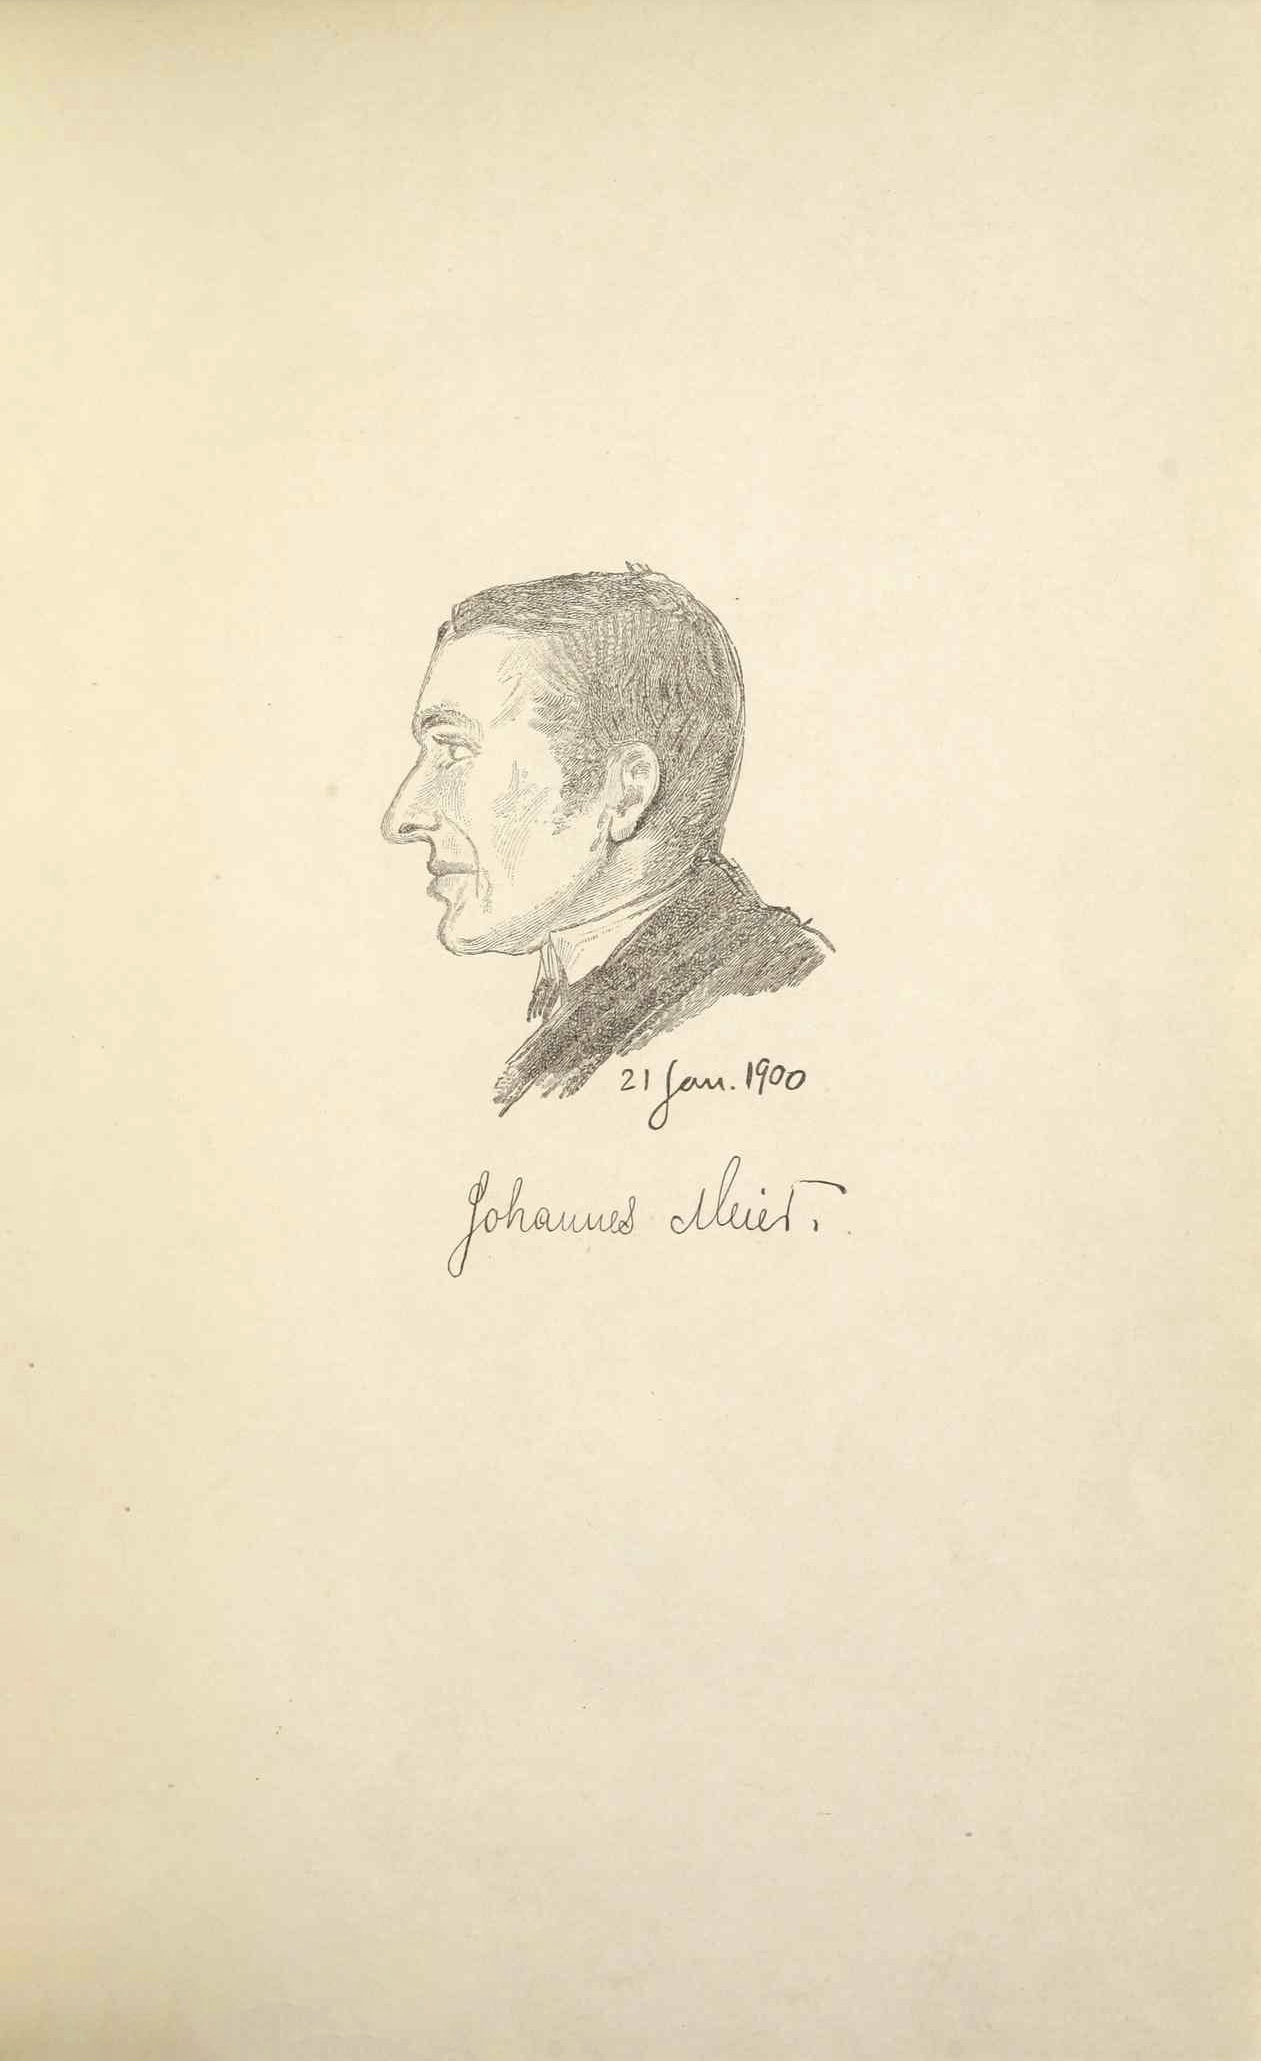 21 Jan. 1900
Johannes Meier.